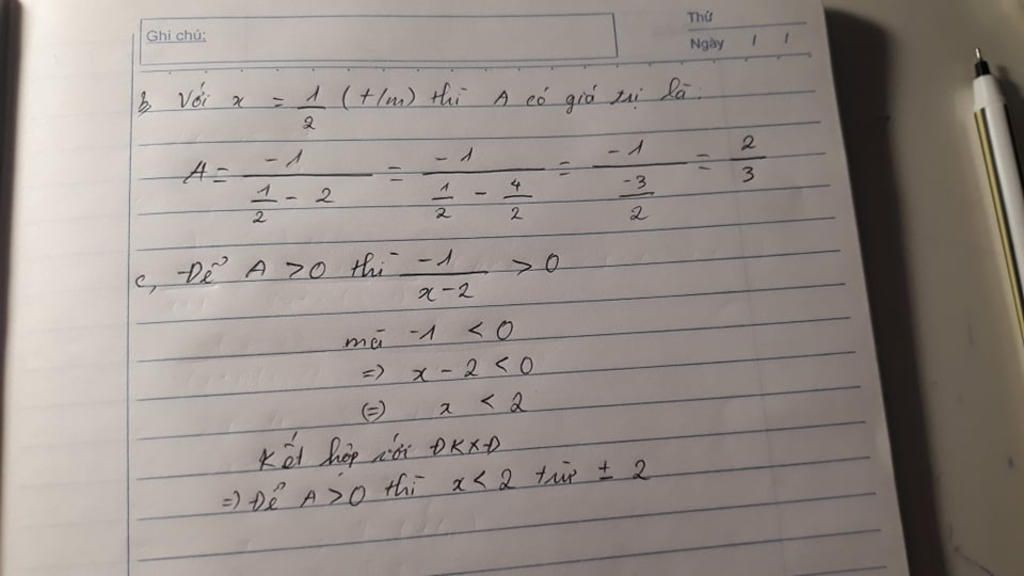 Ghi chú:
Thứ
Ngày / /
b, Với x = 1/2 (t/m) thì A có giá trị là:
A = -1/(1/2 - 2) = -1/(1/2 - 4/2) = -1/(-3/2) = 2/3
c, Để A > 0 thì -1/(x-2) > 0
mà -1 < 0
=> x - 2 < 0
(=) x < 2
Kết hợp với ĐKXĐ
=> Để A > 0 thì x < 2 trừ ± 2